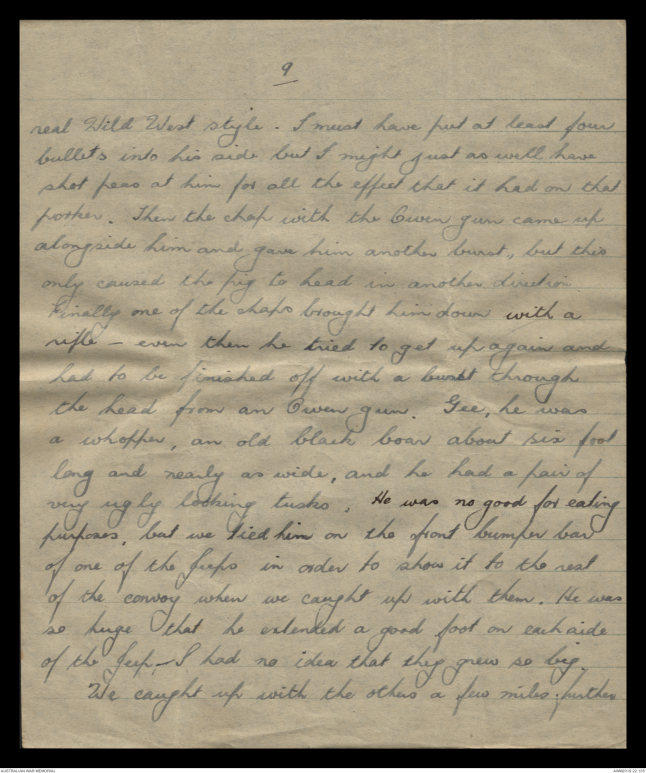 9
real Wild West style. I must have put at least four
bullets into his side but I might just as well have
shot peas at him for all the effect that it had on that
porker. Then the chap with the Owen gun came up
alongside him and gave him another burst, but this
only caused the pig to head in another direction
Finally one of the chaps brought him down with a
rifle - even then he tried to get up again and
had to be finished off with a burst through
the head from an Owen gun. Gee, he was
a whopper, an old black boar about six foot
long and nearly as wide, and he had a pair of
very ugly looking tusks. He was no good for eating
purposes, but we tied him on the front bumper bar
of one of the jeeps in order to show it to the rest
of the convoy when we caught up with them. He was
so huge that he extended a good foot on each side
of the jeep, - I had no idea that they grew so big.
We caught up with the others a few miles further
AUSTRALIAN WAR MEMORIAL